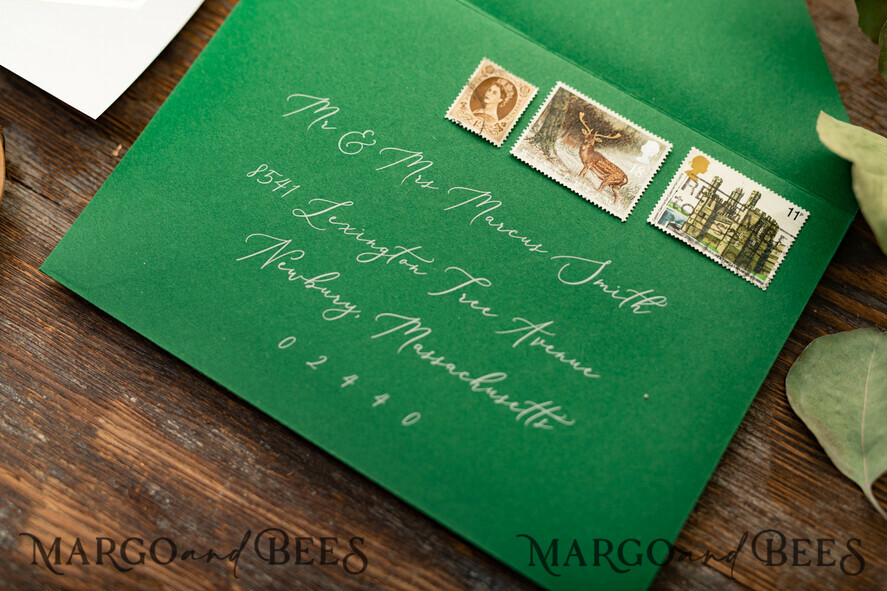 Mr & Mrs Marcus Smith
8541 Lexington Tree Avenue
Newbury, Massachusetts
02440
11
MARGO and BEES
MARGO and BEES